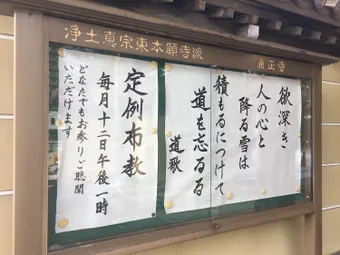 浄土真宗東本願寺派
東正寺
欲深き
人の心と
降る雪は
積もるにつけて
道を忘るる
道歌
定例布教
毎月十二日午後一時
どなたでもお参りご聴聞
いただけます